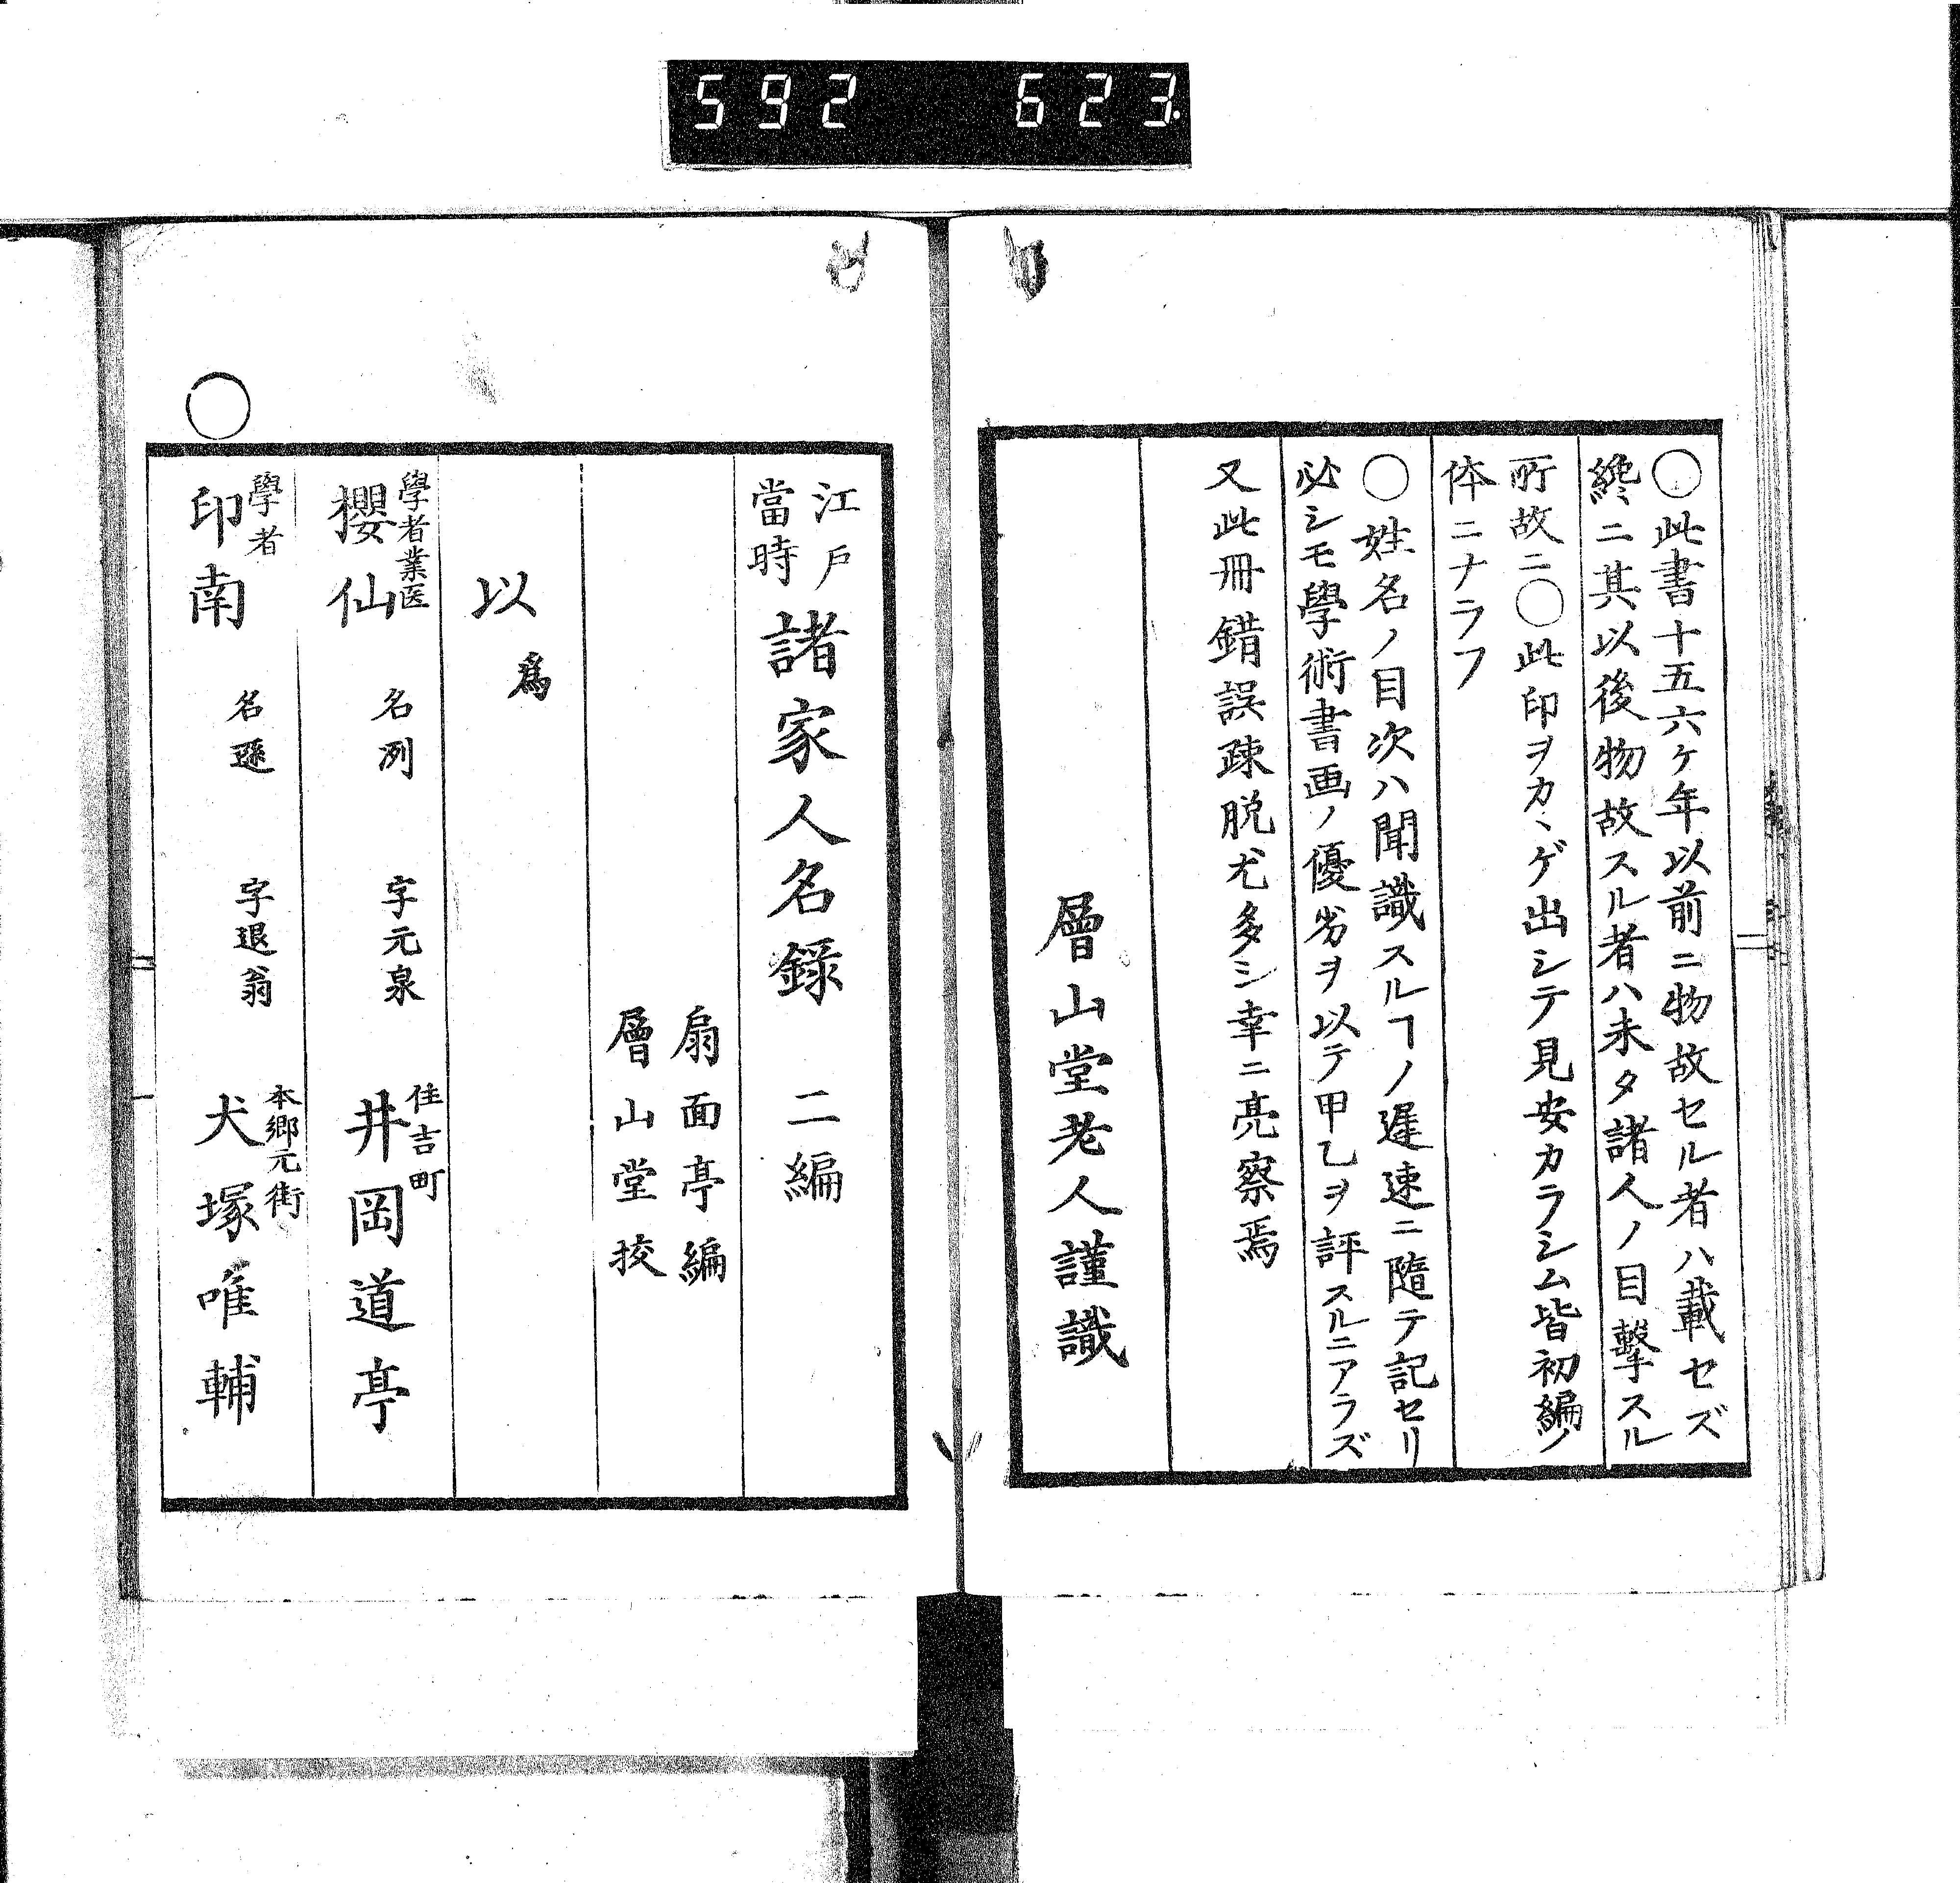 592 623.
○此書十五六ケ年以前ニ物故セル者ハ載セズ
纔ニ其以後物故スル者ハ未タ諸人ノ目擊スル
所故ニ○此印ヲカヽゲ出シテ見安カラシム皆初編ノ
体ニナラフ
○姓名ノ目次ハ聞識スルヿノ遲速ニ隨テ記セリ
必シモ學術書画ノ優劣ヲ以テ甲乙ヲ評スルニアラズ
又此冊錯誤疎脱尤多シ幸ニ亮察焉
層山堂老人謹識
江戸
當時
諸家人名錄 二編
扇面亭編
層山堂挍
以
爲
學者業医
櫻仙 名冽 字元泉
住吉町
井岡道亭
○
學者
印南 名遜 字退翁
本鄉元街
犬塚唯輔